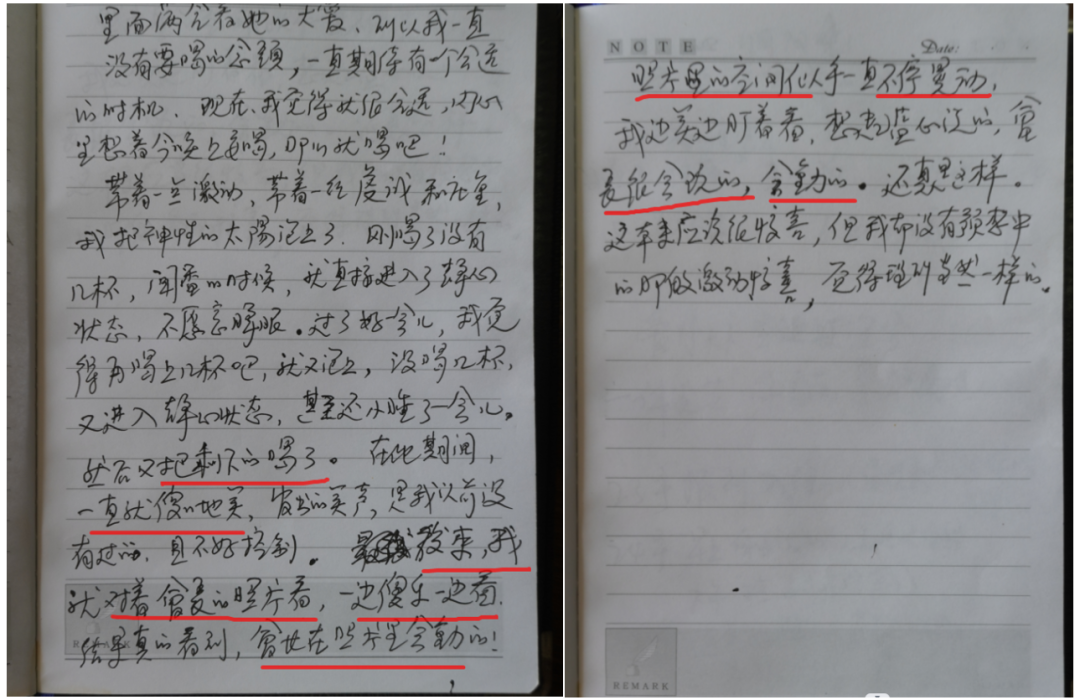 里面满含着她的大爱，所以我一直
没有要喝的念头，一直期待有一个合适
的时机。现在，我觉得就很合适，内心
里想着今晚上要喝，那么就喝吧！
带着一点激动，带着一丝虔诚和庄重，
我把神性的太阳泡上了。刚喝了没有
几杯，闻香的时候，就直接进入了静心
状态，不愿意睁眼。过了好一会儿，我觉
得再喝上几杯吧，就又泡上，没喝几杯，
又进入静心状态，甚至还小睡了一会儿。
然后又把剩下的喝了。在此期间，
一直就傻傻地笑，发出的笑声，是我以前没
有过的，且不好控制。后来，我
就对着曾夏的照片看，一边傻乐一边看，
结果真的看到，曾他在照片里会动的！
REMARK
NOTE
Date:
照片里的空间似乎一直不停晃动，
我边笑边盯着看，想起蓝心说的，曾
夏很会说的，会动的。还真是这样。
这本来应该很惊喜，但我却没有预想中
的那般激动惊喜，觉得理所当然一样的。
REMARK